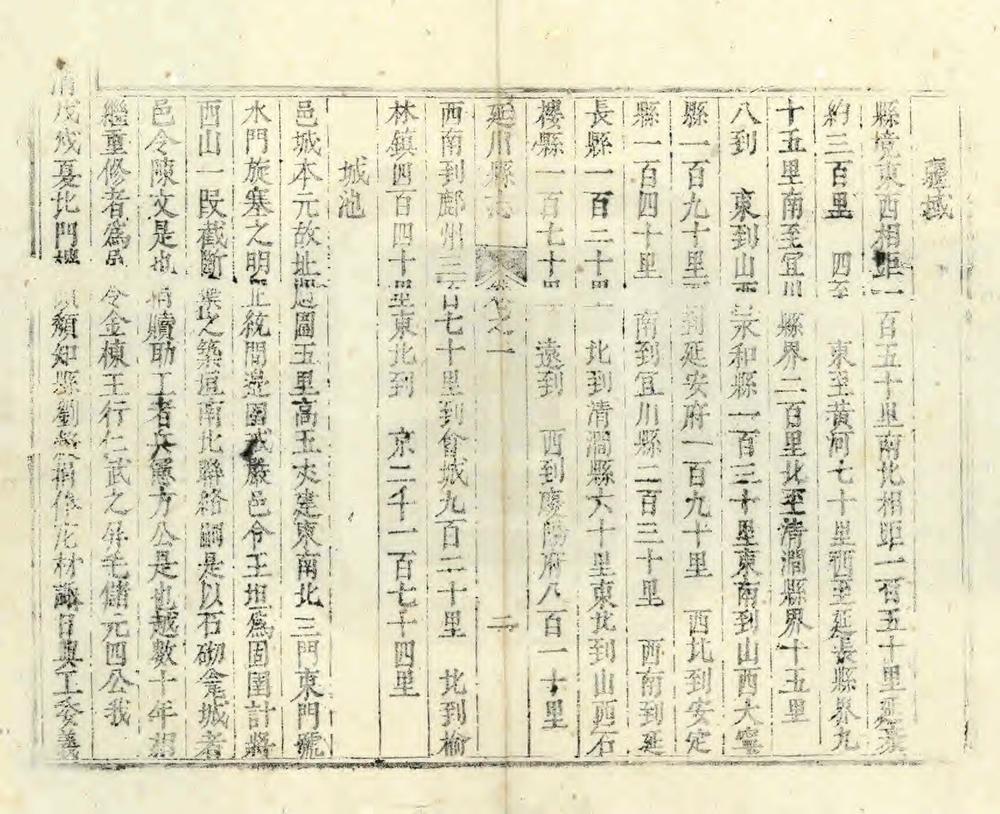 疆域
縣境東西相距一百五十里南北相距一百五十里延袤
約三百里　四至　東至黃河七十里西至延長縣界九
十五里南至宜川縣界二百里北至清澗縣界十五里
八到　東到山西永和縣一百三十里東南到山西大寧
縣一百九十里西到延安府一百九十里　西北到安定
縣一百四十里　南到宜川縣二百三十里　西南到延
長縣一百二十里　北到清澗縣六十里東北到山西石
樓縣一百七十里　遠到　西到慶陽府八百一十里
延川縣志　卷之一　二
西南到鄜州三百七十里到會城九百二十里　北到榆
林鎮四百四十里東北到　京二千一百七十四里
城池
邑城本元故址週圍五里高五丈建東南北三門東門號
水門旋塞之明正統間邊圉戒嚴邑令王坦為固圉計將
西山一段截斷業之築垣南北聯絡嗣是以石砌龕城者
邑令陳文是也捐贖助工者兵憲方公是也越數十年相
繼重修者為邑令金棟王行仁武之屏毛儲元四公我
清戊戌夏北門樓頹知縣劉穀捐俸庀材諏日興工委義